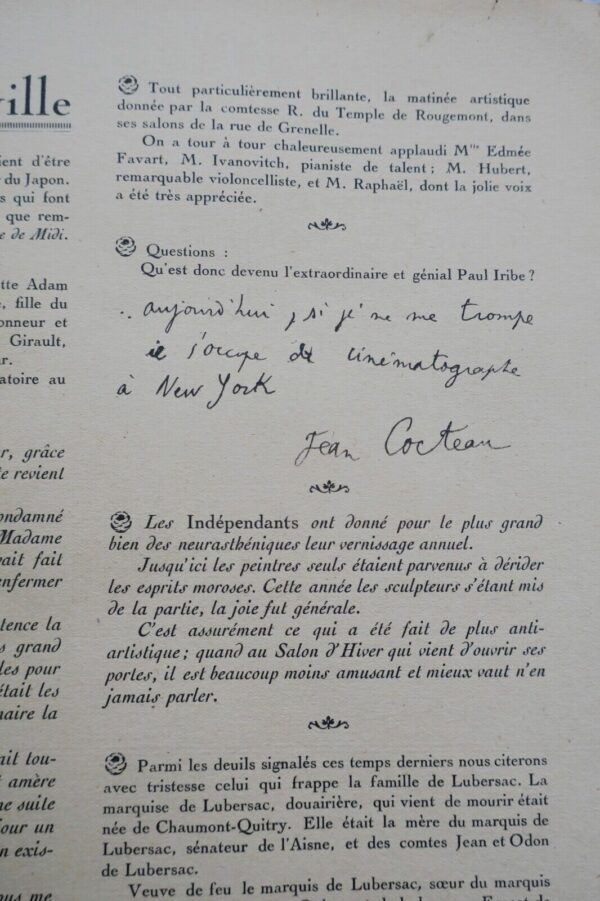 ville
ient d'être
du Japon.
s qui font
que rem-
e de Midi.
tte Adam
, fille du
onneur et
Girault,
r.
atoire au
r, grâce
te revient
ondamné
Madame
vait fait
enfermer
tence la
s grand
les pour
était les
naire la
ait tou-
t amère
ne suite
jour un
n exis-
ous me
Tout particulièrement brillante, la matinée artistique
donnée par la comtesse R. du Temple de Rougemont, dans
ses salons de la rue de Grenelle.
On a tour à tour chaleureusement applaudi Mlle Edmée
Favart, M. Ivanovitch, pianiste de talent ; M. Hubert,
remarquable violoncelliste, et M. Raphaël, dont la jolie voix
a été très appréciée.
Questions :
Qu'est donc devenu l'extraordinaire et génial Paul Iribe ?
.. aujourd'hui, si je ne me trompe
il s'occupe de cinématographe
à New York
Jean Cocteau
Les Indépendants ont donné pour le plus grand
bien des neurasthéniques leur vernissage annuel.
Jusqu'ici les peintres seuls étaient parvenus à dérider
les esprits moroses. Cette année les sculpteurs s'étant mis
de la partie, la joie fut générale.
C'est assurément ce qui a été fait de plus anti-
artistique ; quand au Salon d'Hiver qui vient d'ouvrir ses
portes, il est beaucoup moins amusant et mieux vaut n'en
jamais parler.
Parmi les deuils signalés ces temps derniers nous citerons
avec tristesse celui qui frappe la famille de Lubersac. La
marquise de Lubersac, douairière, qui vient de mourir était
née de Chaumont-Quitry. Elle était la mère du marquis de
Lubersac, sénateur de l'Aisne, et des comtes Jean et Odon
de Lubersac.
Veuve de feu le marquis de Lubersac, sœur du marquis